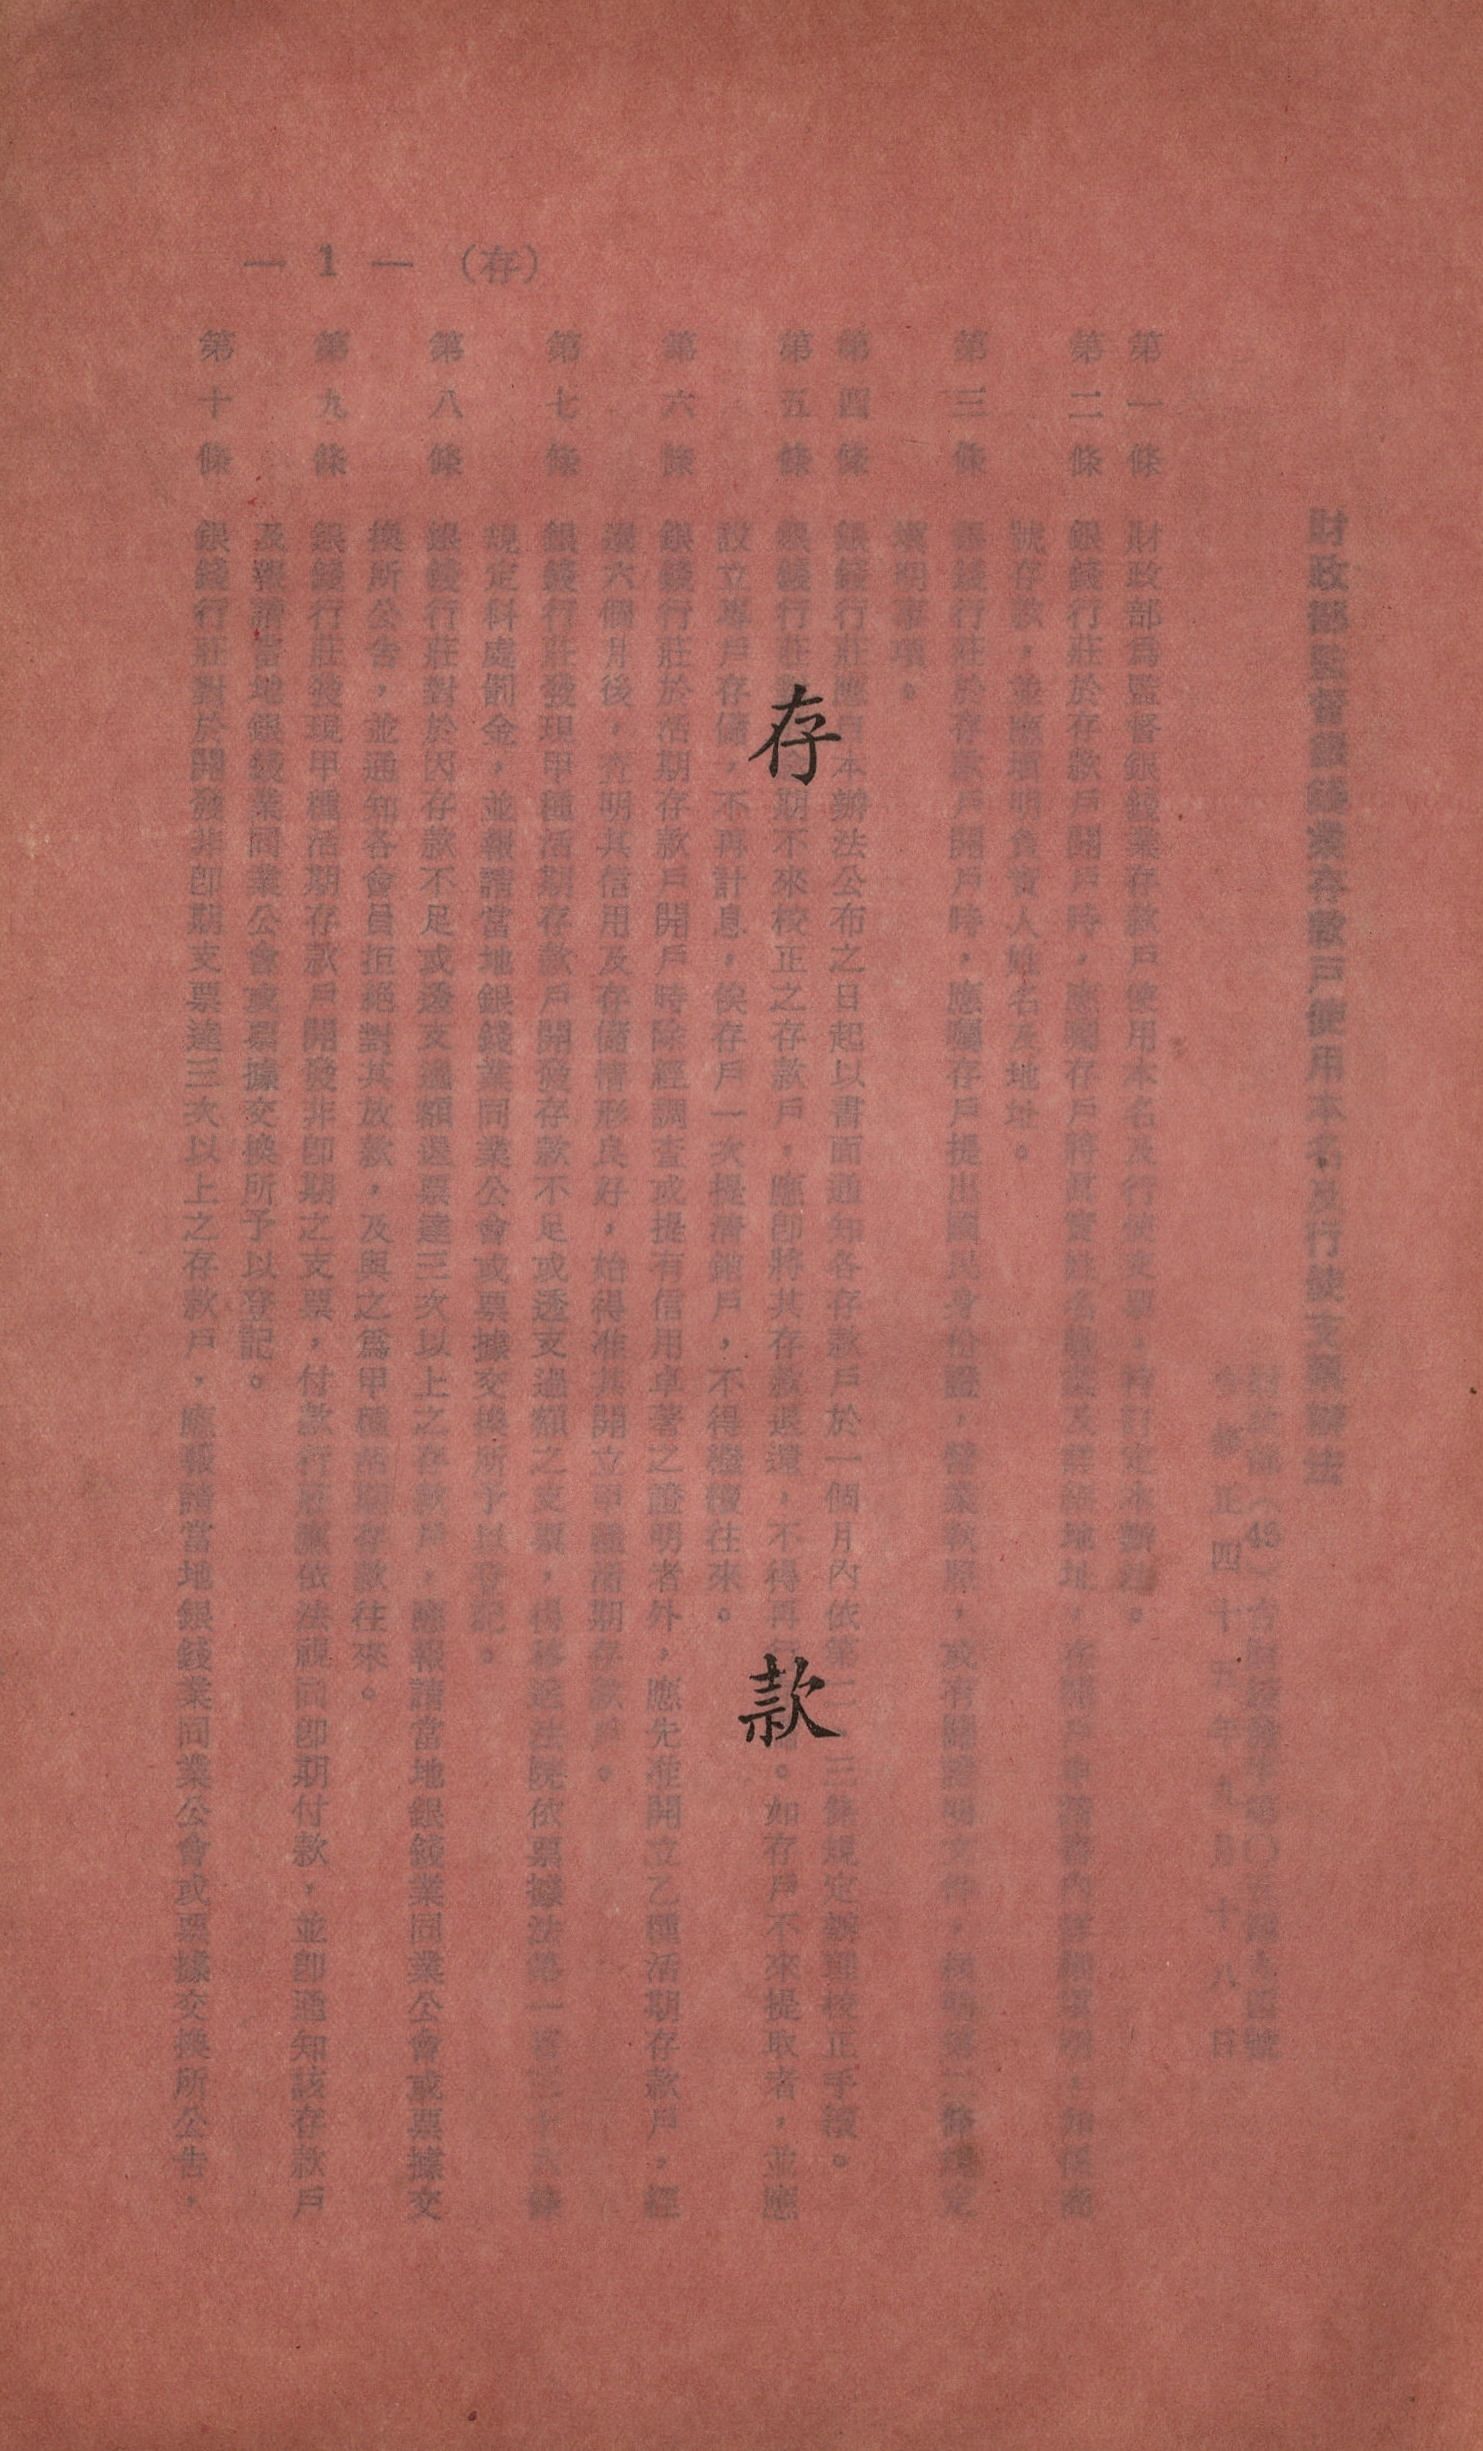 存款
— 1 — （存）
財政部監督銀錢業存款戶使用本名及行使支票辦法
修正四十五年九月十八日
第一條 財政部為監督銀錢業存款戶使用本名及行使支票，特訂定本辦法。
第二條 銀錢行莊於存款戶開戶時，應囑存戶將真實姓名
號存款，並應填明負責人姓名及地址。
第三條 銀錢行莊於存款戶開戶時，應囑存戶提出國民身份證，營業執照，或有關證明文件
填明事項。
第四條 銀錢行莊應自本辦法公布之日起以書面通知各存款戶於一個月內依第二 三條規定辦理校正手續。
第五條 銀錢行莊 期不來校正之存款戶，應即將其存款退還，不得再 。如存戶不來提取者，並應
設立專戶存儲，不再計息，俟存戶一次提清銷戶，不得繼續往來。
第六條 銀錢行莊於活期存款戶開戶時除經調查或提有信用卓著之證明者外，應先准開立乙種活期存款戶，經
過六個月後，查明其信用及存儲情形良好，始得准其開立甲種活期存款戶。
第七條 銀錢行莊發現甲種活期存款戶開發存款不足或透支過額之支票，得移送法院依票據法第一百三十六條
規定科處罰金，並報請當地銀錢業同業公會或票據交換所予以登記。
第八條 銀錢行莊對於因存款不足或透支過額退票達三次以上之存款戶，應報請當地銀錢業同業公會或票據交
換所公告，並通知各會員拒絕對其放款，及與之為甲種活期存款往來。
第九條 銀錢行莊發現甲種活期存款戶開發非即期之支票，付款行莊應依法視同即期付款，並即通知該存款戶
及報請當地銀錢業同業公會或票據交換所予以登記。
第十條 銀錢行莊對於開發非即期支票達三次以上之存款戶，應報請當地銀錢業同業公會或票據交換所公告，